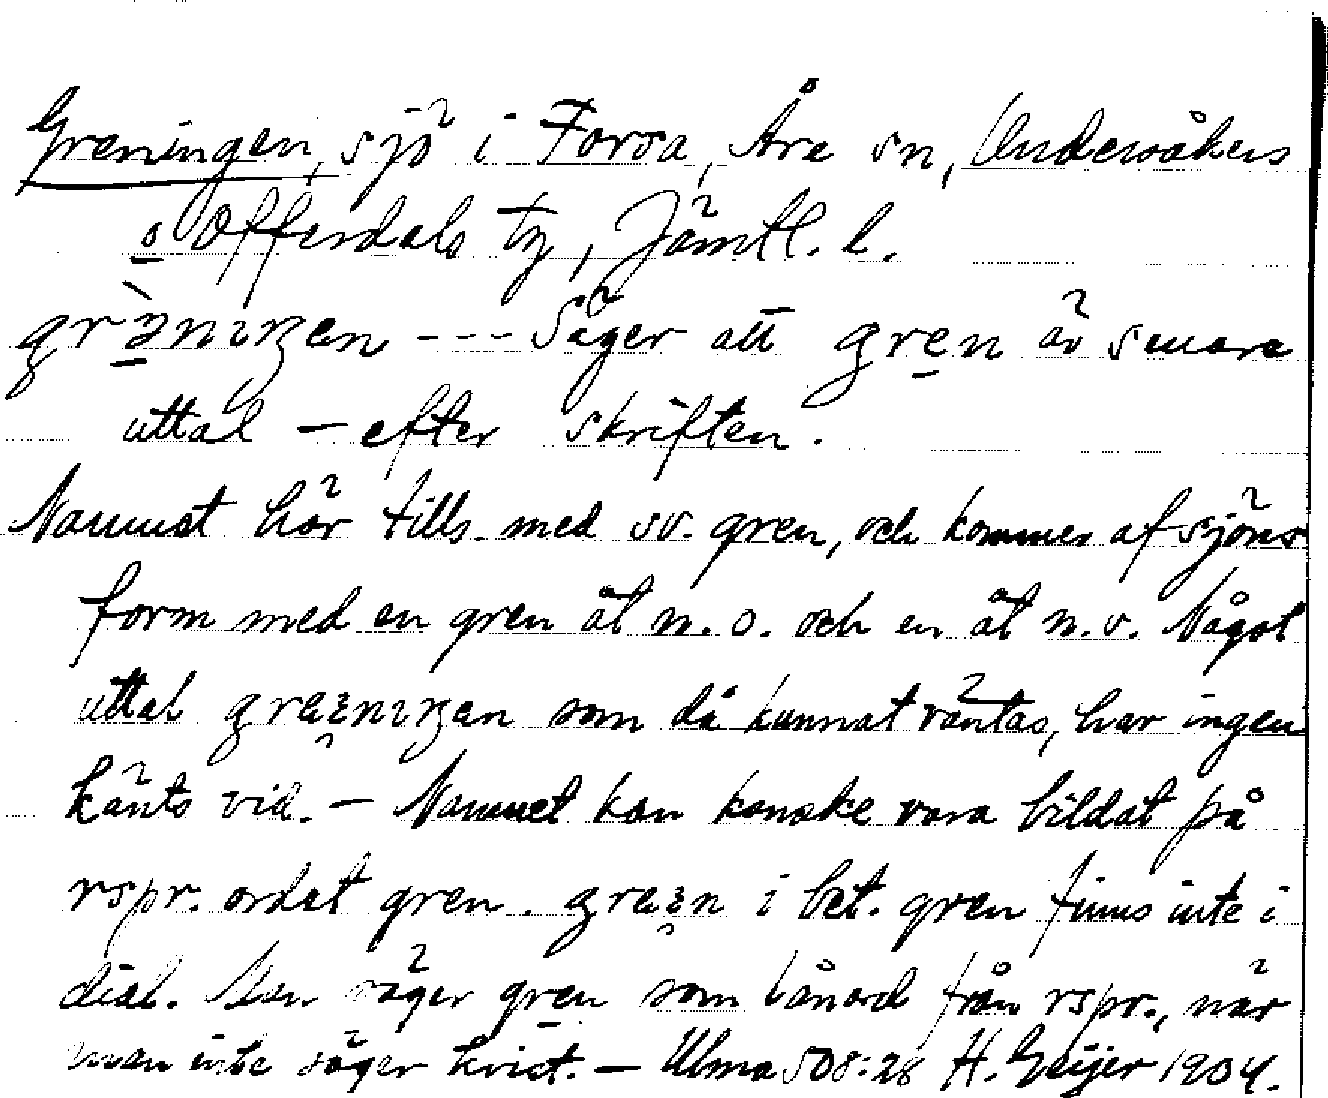 Greningen, sjö i Forsa, Åre sn, Undersåkers
o Offerdals tg, Jämtl. l.
grə̀niŋen --- Säger att gren är snare
uttal – efter skriften.
Namnet hör tills. med sv. gren, och kommer af sjöns
form med en gren åt n. o. och en åt n. v. Något
uttal graəniŋen som då kunnat väntas, har ingen
känts vid. – Namnet kan kanske vara bildat på
rspr. ordet gren. graən i bet. gren finns inte i
dial. Man säger gren som lånord från rspr., när
man inte säger kvist. – Ulma 508:28 H. Geijer 1904.